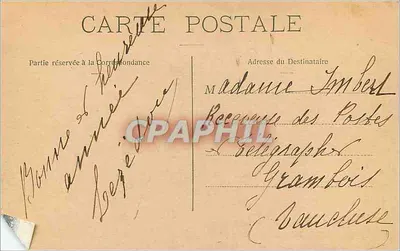 CARTE POSTALE
Partie réservée à la Correspondance
Adresse du Destinataire
Bonne et heureuse
année
Madame Imbert
Receveuse des Postes
Télégraphe
Grambois
(Vaucluse
CPAPHIL